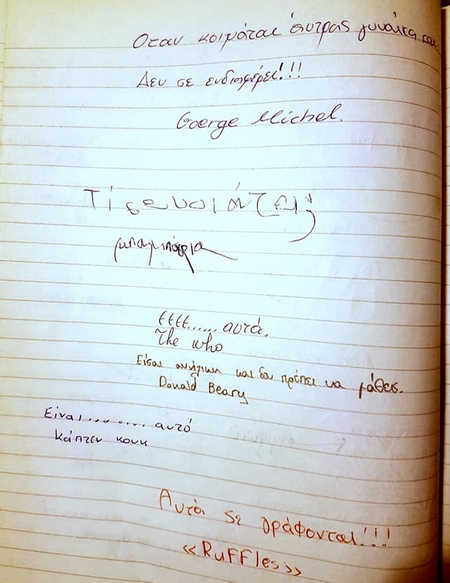 Οταν κοιμάται άντρας γυναίκα και
Δεν σε ενδιαφέρει!!!
Goerge Michel.
Τί σε νοιάζει;
εεεε...... αυτά.
The who
Είσαι ανήλικη και δεν πρέπει να μάθεις.
Donald Beary
Είναι........ αυτό
κάπτεν κουκ
Αυτά δε γράφονται!!!
«RuFFles»